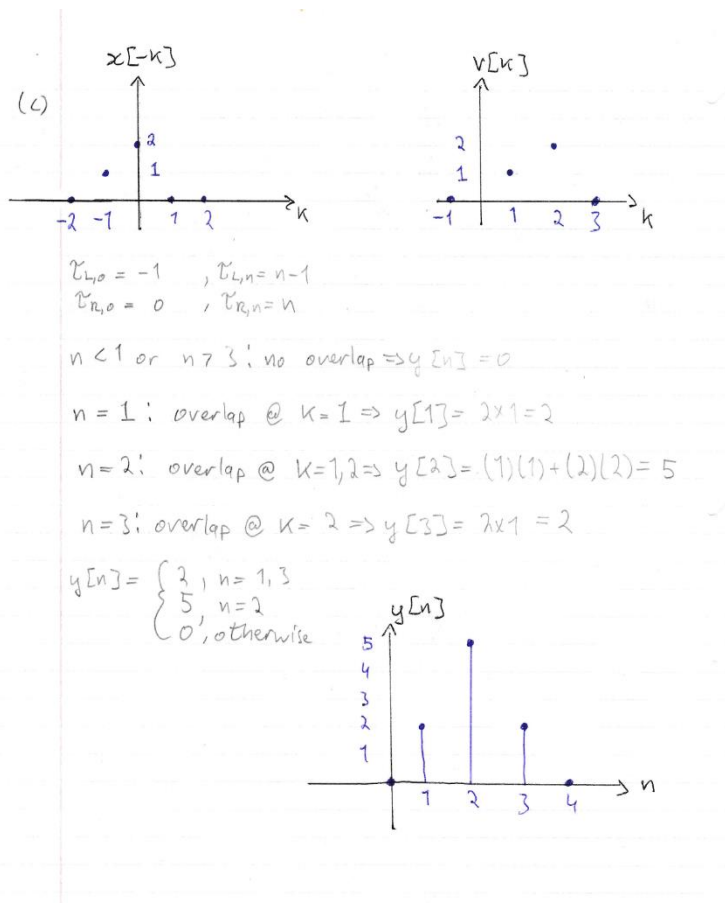 x[-k]
v[k]
(c)
2
1
-2 -1 1 2 k
2
1
-1 1 2 3 k
τL,0 = -1 , τL,n = n-1
τR,0 = 0 , τR,n = n
n < 1 or n > 3: no overlap => y[n] = 0
n = 1: overlap @ k = 1 => y[1] = 2x1 = 2
n = 2: overlap @ k=1,2 => y[2] = (1)(1)+(2)(2) = 5
n = 3: overlap @ k = 2 => y[3] = 2x1 = 2
y[n] = { 2, n = 1,3
5, n = 2
0, otherwise
y[n]
5
4
3
2
1
1 2 3 4 n